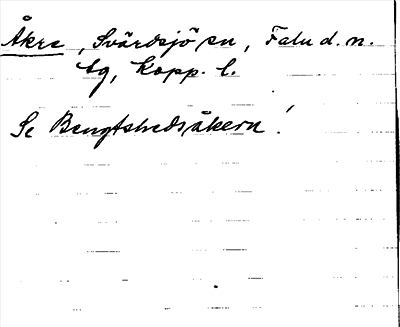 Åkre, Svärdsjö sn, Falu d. n.
tg, Kopp. l.
Se Bengtshedsåkern!